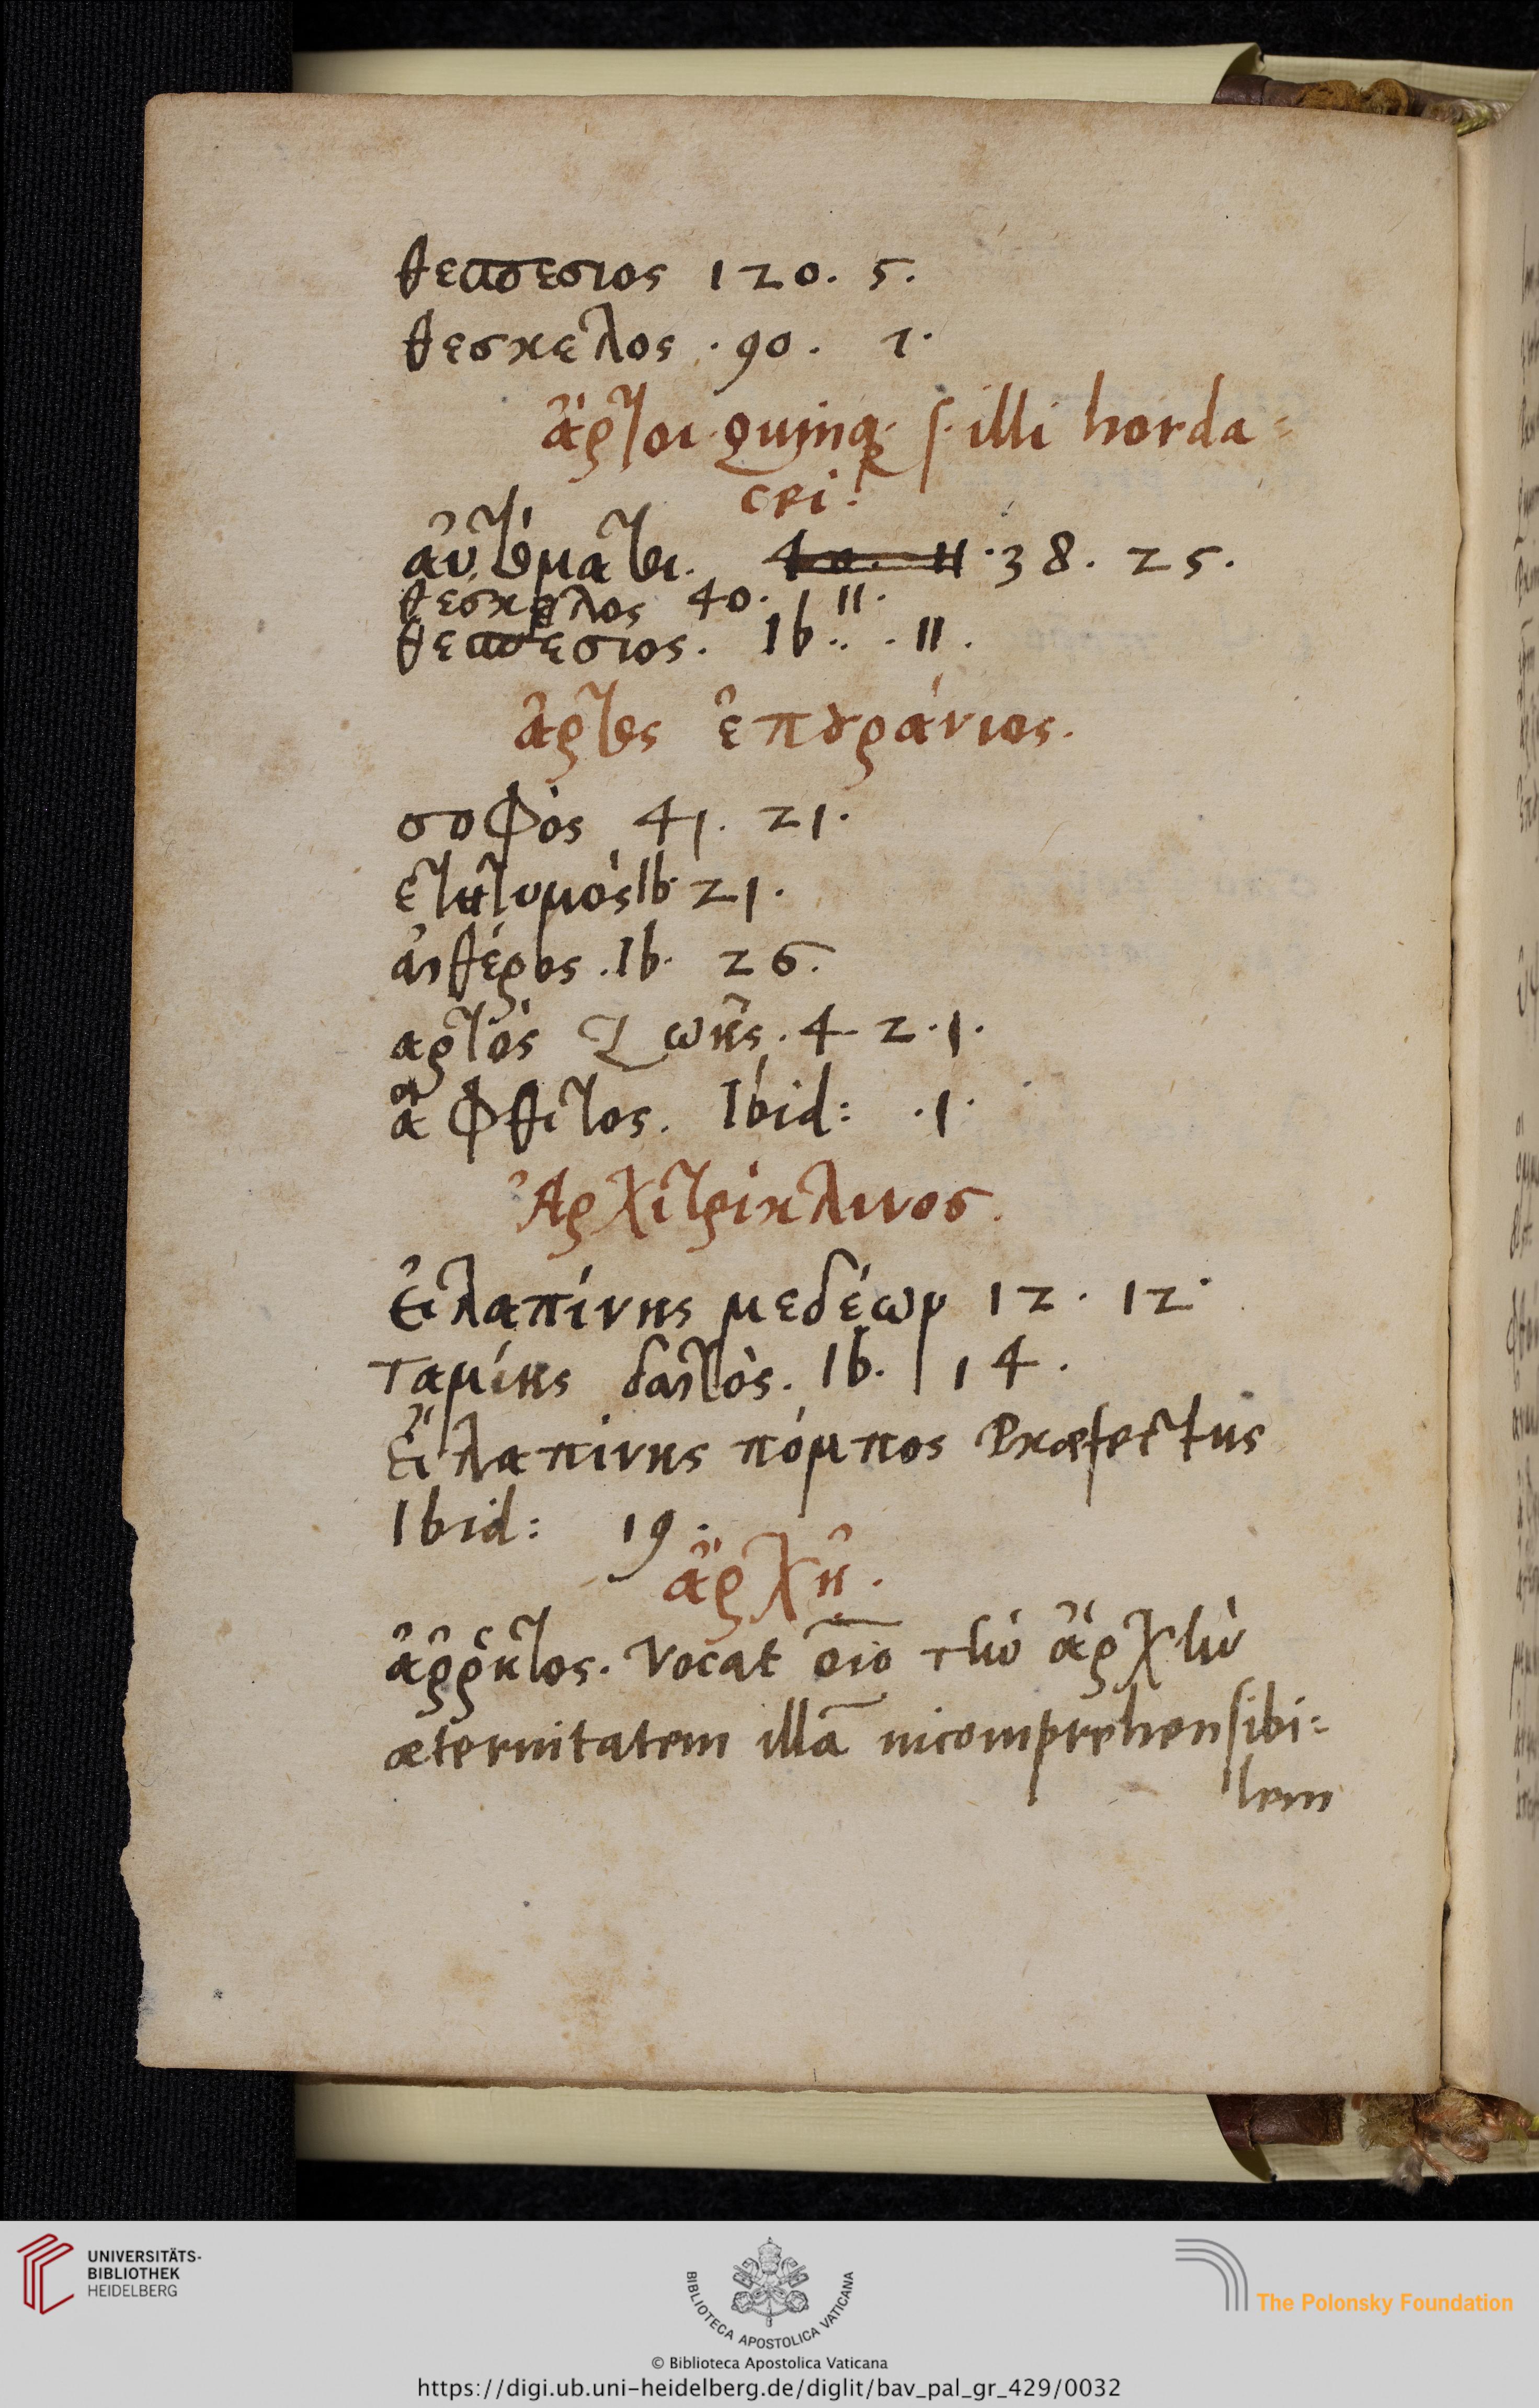 θεσπεσιος 120. 5.
θεσκελος . 90. 7.
ἄρτοι quinq. s. illi horda=
cei.
αὐτόματοι. 38. 25.
θεσκελος 40. 11.
θεσπεσιος. Ib. . 11.
ἄρτος ἐπουράνιος.
σοφὸς 41. 21.
ετητυμὸς Ib. 21.
αἰθέριος . Ib. 26.
αρτὸς ζωῆς . 42. 1.
ἄφθιτος. Ibid: . 1.
Ἀρχιτρίκλινος.
Εἰλαπίνης μεδέων 12. 12.
ταμίης δαιτὸς. Ib. 14.
Εἰλαπίνης πόμπος Præfectus
Ibid: 19.
ἄρχη.
ἄῤῥητος. Vocat τὴν ἄρχὴν
æternitatem illā incomprehensibi=
lem
UNIVERSITÄTS-
BIBLIOTHEK
HEIDELBERG
BIBLIOTECA APOSTOLICA VATICANA
The Polonsky Foundation
© Biblioteca Apostolica Vaticana
https://digi.ub.uni-heidelberg.de/diglit/bav_pal_gr_429/0032